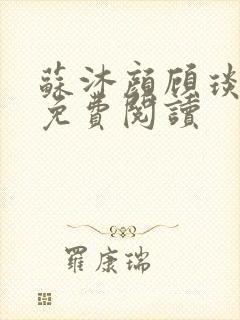 蘇沐顏顧琰
免費閱讀
羅康瑞